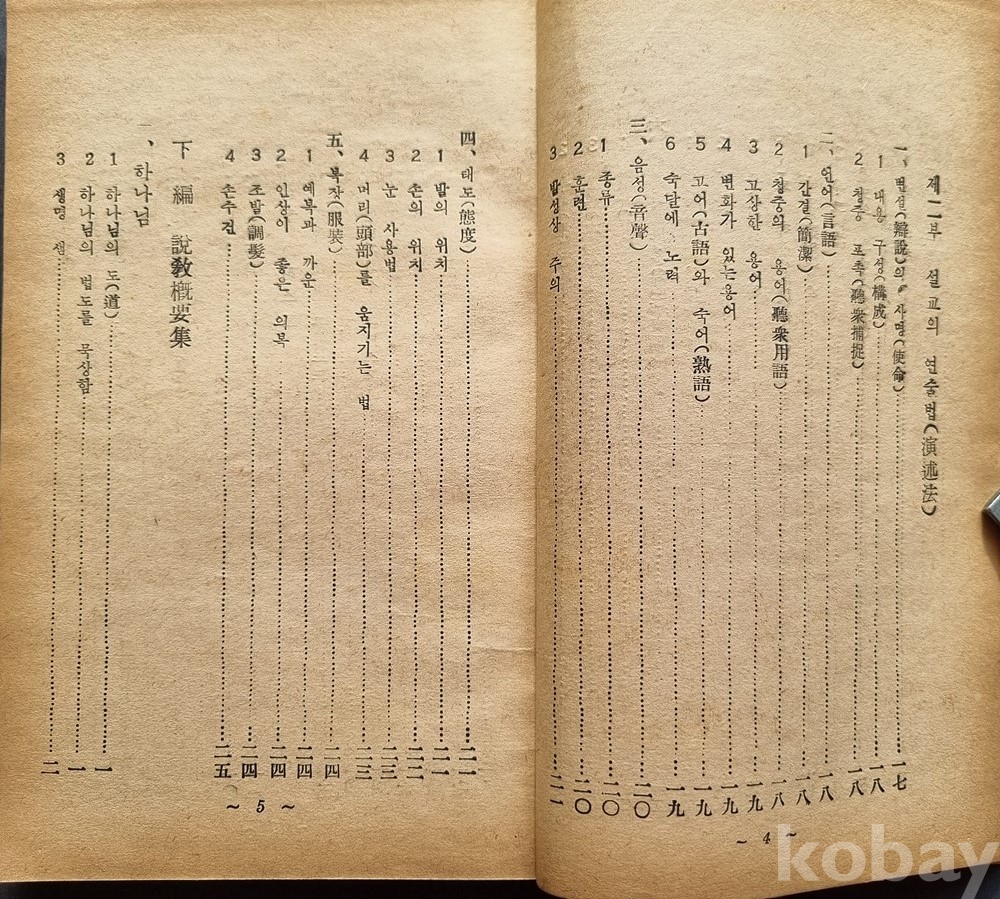 제二부 설교의 연술법(演述法)
一、변설(辯說)의 사명(使命)………一七
1 내용 구성(構成)………一八
2 청중 포촉(聽衆捕捉)………一八
二、언어(言語)………一八
1 간결(簡潔)………一八
2 청중의 용어(聽衆用語)………一八
3 고상한 용어………一九
4 변화가 있는용어………一九
5 고어(古語)와 숙어(熟語)………一九
6 숙달에 노력………一九
三、음성(音聲)………二〇
1 종류………二〇
2 훈련………二〇
3 발성상 주의………二一
~ 4 ~
四、태도(態度)………二一
1 발의 위치………二一
2 손의 위치………二二
3 눈 사용법………二三
4 머리(頭部)를 움지기는 법………二三
五、복장(服裝)………二四
1 예복과 까운………二四
2 인상이 좋은 의복………二四
3 조발(調髮)………二四
4 손수건………二五
下編 說敎槪要集
一、하나님
1 하나님의 도(道)………一
2 하나님의 법도를 묵상함………一
3 생명 샘………二
~ 5 ~
kobay